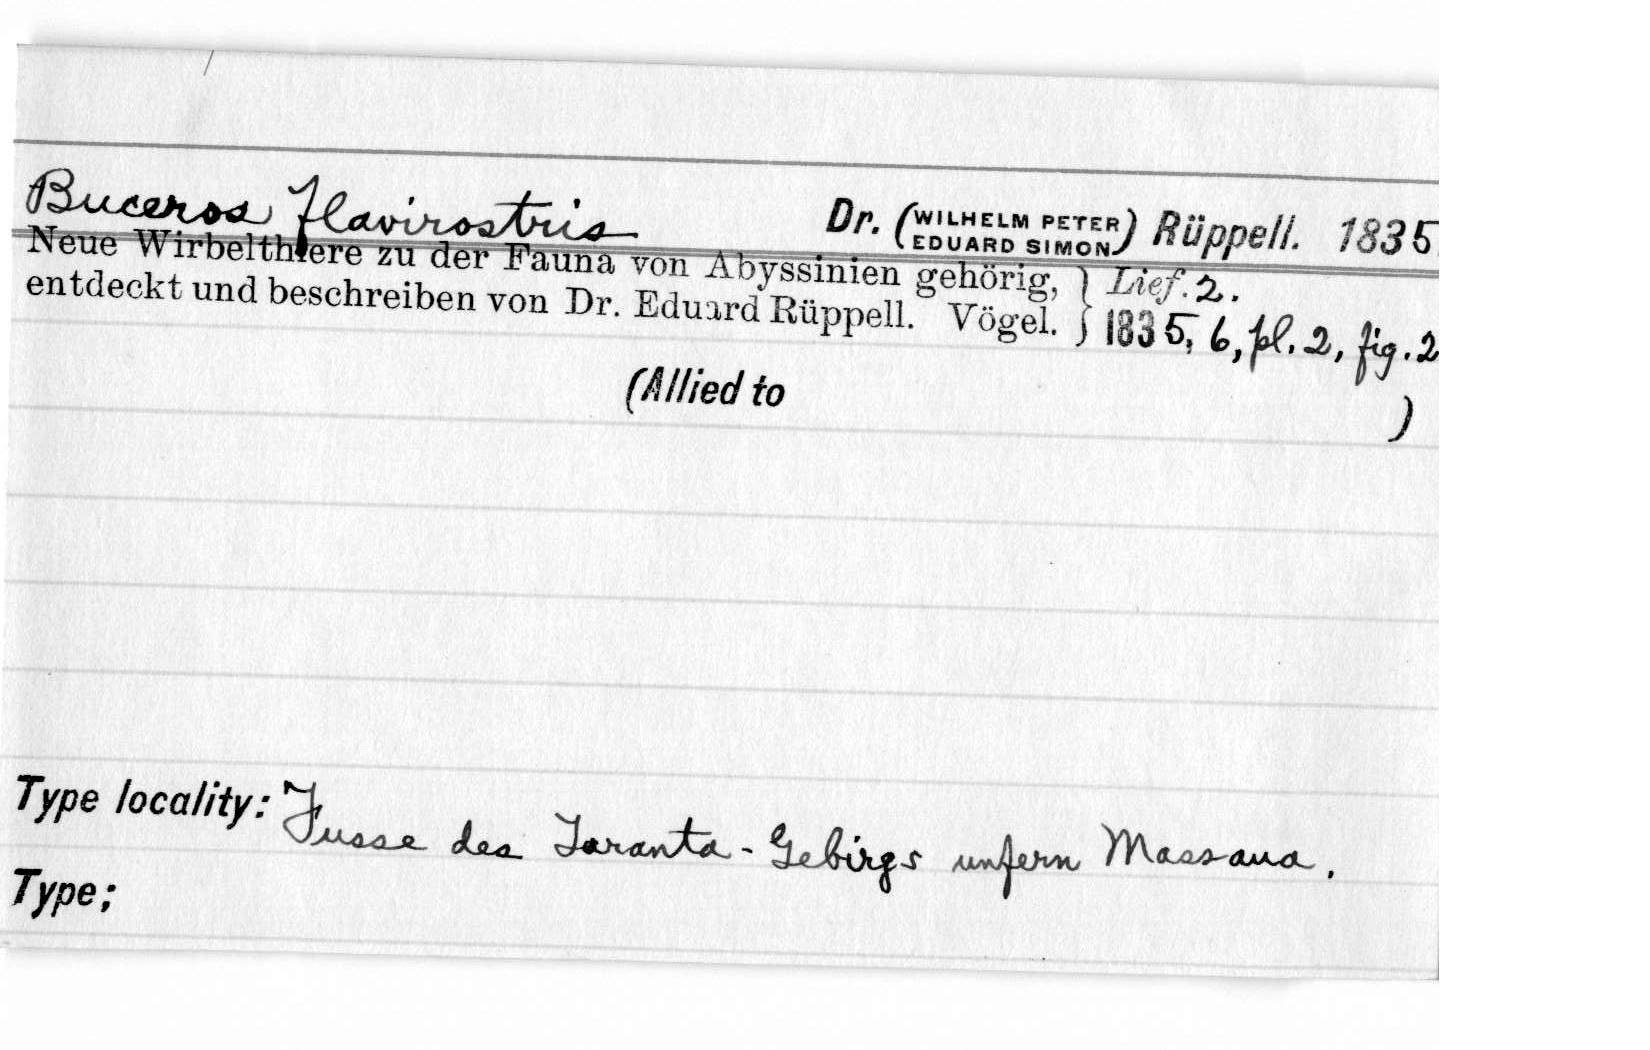 Buceros flavirostris Dr. (WILHELM PETER EDUARD SIMON) Rüppell. 1835
Neue Wirbelthiere zu der Fauna von Abyssinien gehörig, } Lief. 2.
entdeckt und beschreiben von Dr. Eduard Rüppell. Vögel. } 1835, 6, pl. 2, fig. 2
(Allied to )
Type locality: Fusse des Taranta-Gebirgs unfern Massaua.
Type;